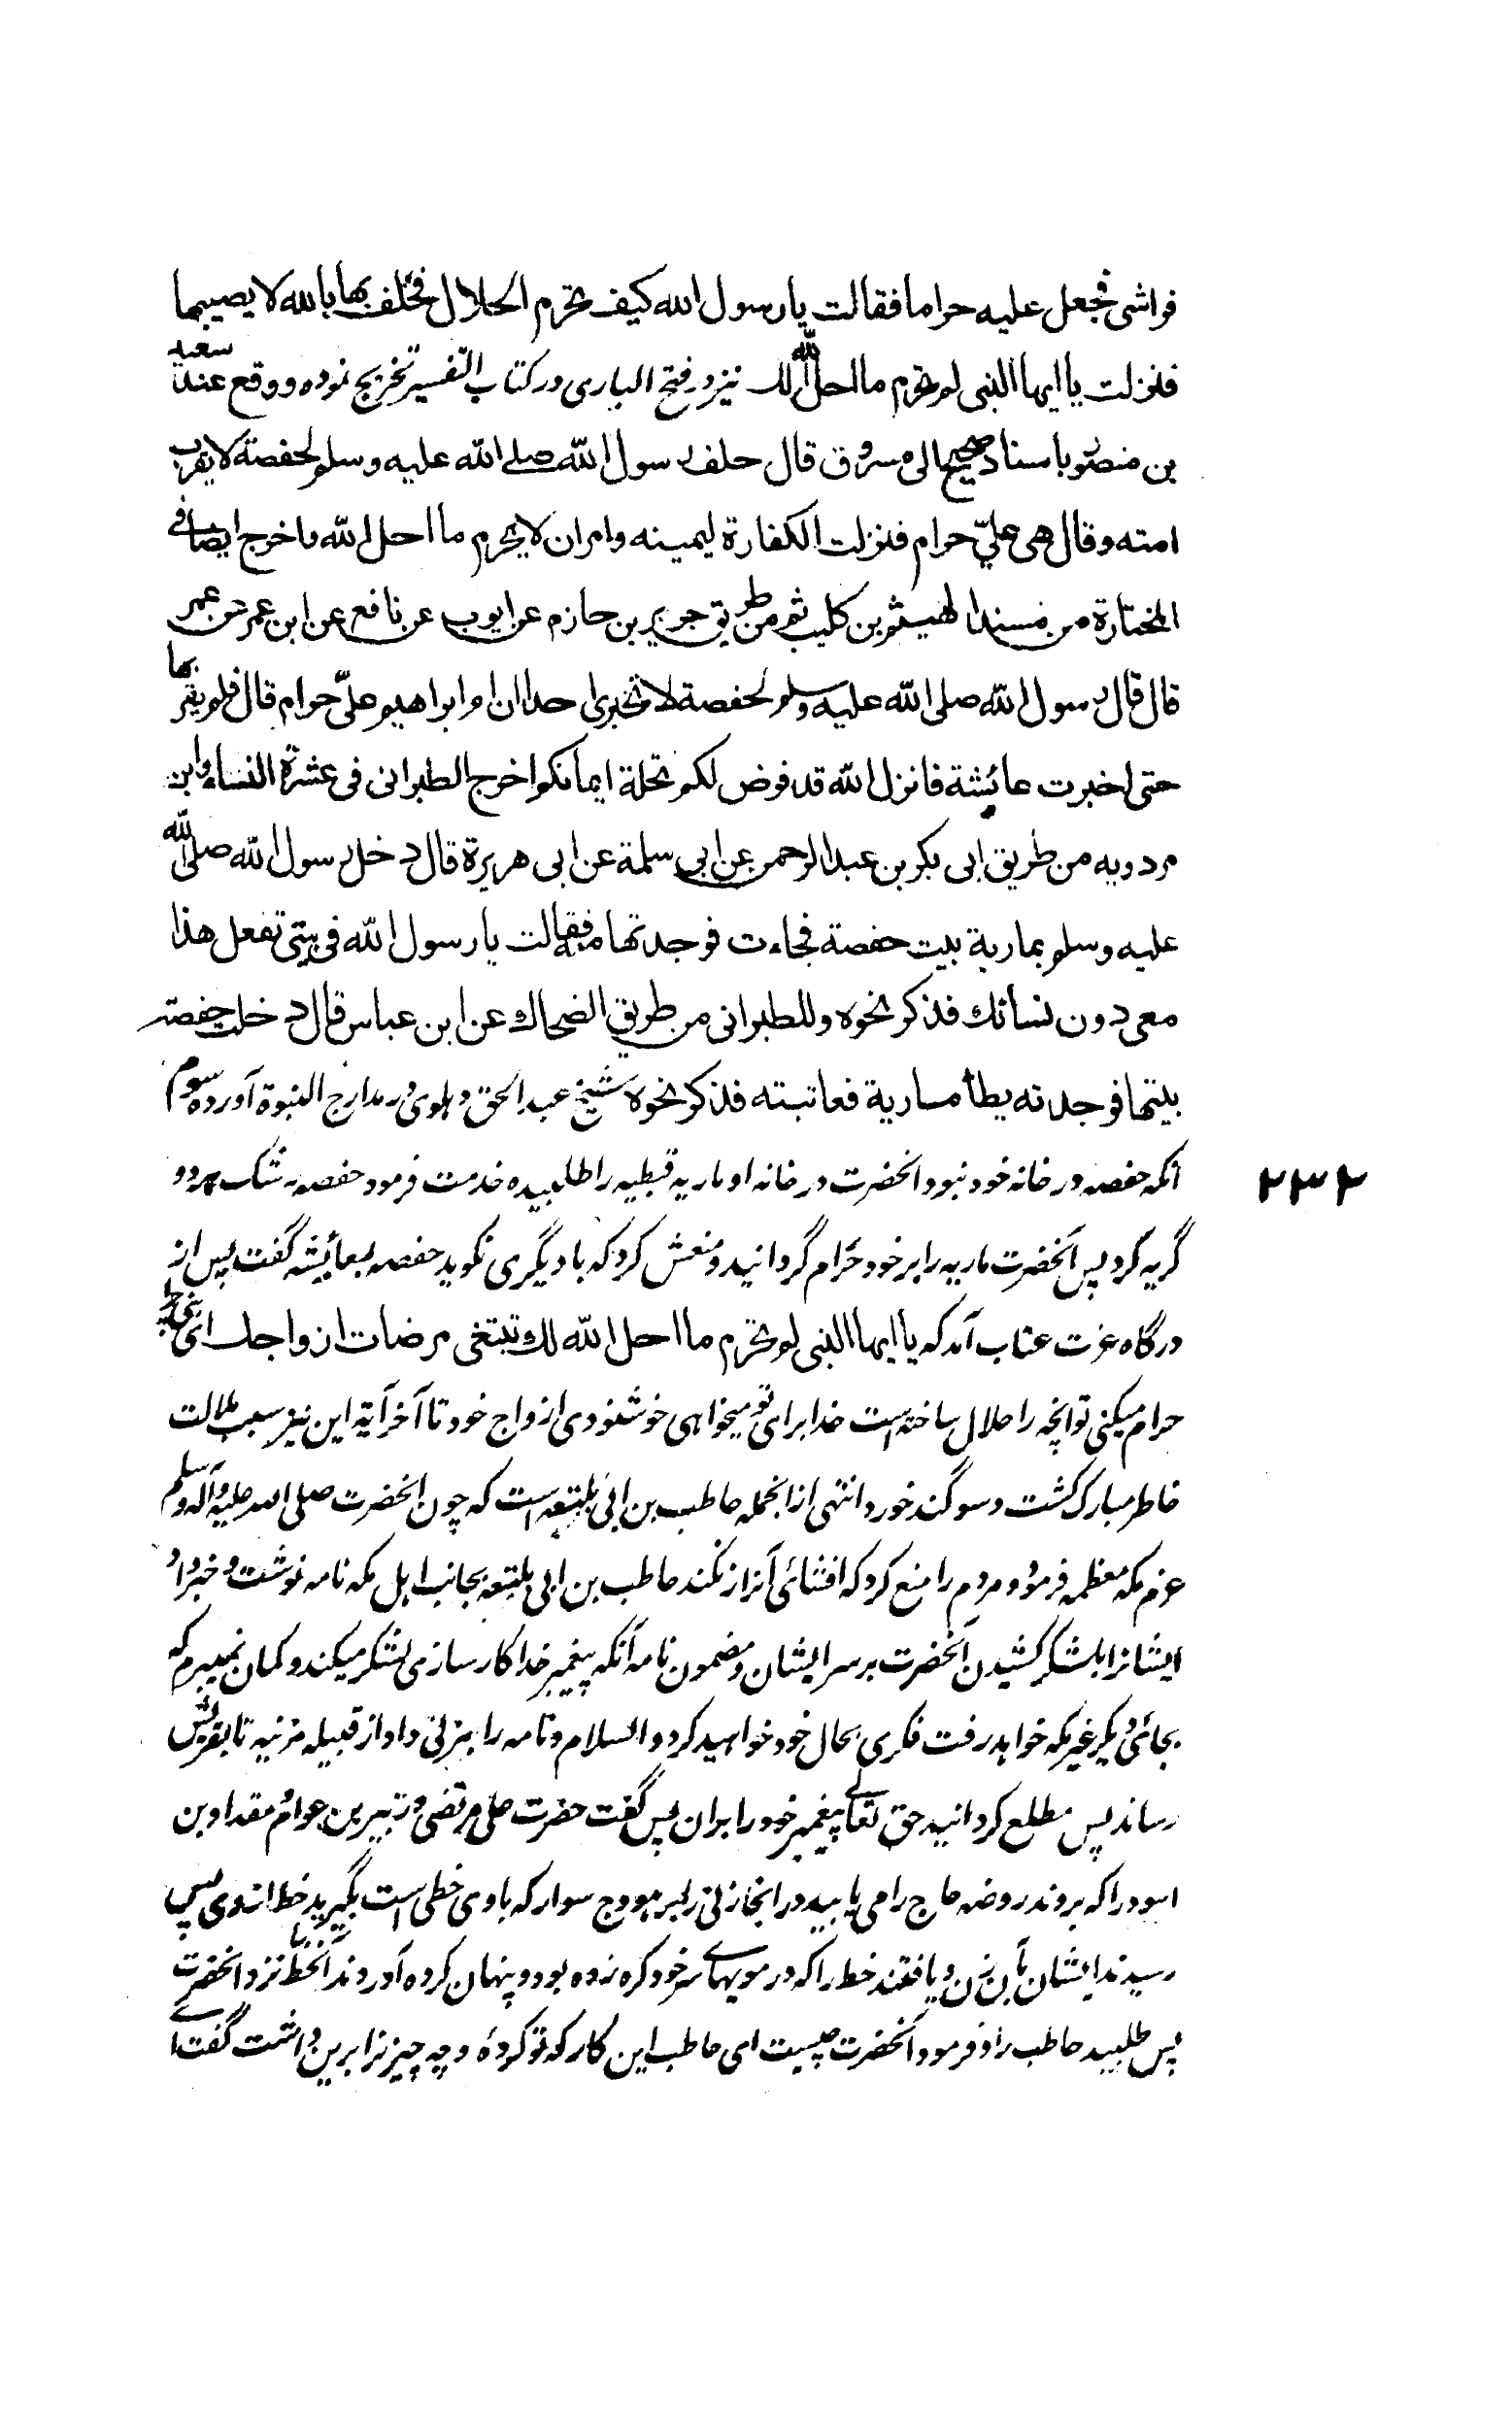 فراشى فجعل عليه حراما فقالت يا رسول الله كيف تحرم الحلال فحلف بها بالله لا يصيبها
فنزلت يا ايها النبى لم تحرم ما احل الله لك نيز در فتح البارى در كتاب التفسير تخريج نموده ووقع عند سعيد
بن منصور باسناد صحيح الى مسروق قال حلف رسول الله صلى الله عليه وسلم لحفصة لا يقرب
امته وقال هى علىّ حرام فنزلت الكفارة ليمينه وامر ان لا يحرم ما احل الله واخرج ايضا فى
المختارة من مسند الهيثم بن كليب ثم من طريق جرير بن حازم عن ايوب عن نافع عن ابن عمر عن عمر
قال قال رسول الله صلى الله عليه وسلم لحفصة لا تخبرى احدا ان ام ابراهيم علىّ حرام قال فلم يقربها
حتى اخبرت عائشة فانزل الله قد فرض لكم تحلة ايمانكم اخرج الطبرانى فى عشرة النساء وابن
مردويه من طريق ابى بكر بن عبد الرحمن عن ابى سلمة عن ابى هريرة قال دخل رسول الله صلى الله
عليه وسلم بمارية بيت حفصة فجاءت فوجدتها معه فقالت يا رسول الله فى بيتى تفعل هذا
معى دون نسائك فذكر نحوه وللطبرانى من طريق الضحاك عن ابن عباس قال دخلت حفصة
بيتها فوجدته يطأ مارية فعاتبته فذكر نحوه شيخ عبد الحق دہلوی در مدارج النبوة آورده سوم
آنکه حفصه در خانه خود نبود آنحضرت در خانه او ماریه قبطیه را طلبیده خدمت فرمود حفصه رشک برد و
۲۳۲
گریه کرد پس آنحضرت ماریه را بر خود حرام گردانید و منعش کرد که با دیگری نگوید حفصه بعائشه گفت پس از
درگاه عزت عتاب آمد که يا ايها النبى لم تحرم ما احل الله لك تبتغى مرضات ازواجك ای نبی چرا
حرام میکنی تو آنچه را حلال ساخته است خدا برای تو میخواهی خوشنودی ازواج خود تا آخر آیة این نیز سبب ملالت
خاطر مبارک گشت و سوگند خورد انتهی از آنجمله حاطب بن ابی بلتعه است که چون آنحضرت صلی الله علیه وآله وسلم
عزم مکه معظمه فرمود و مردم را منع کرد که افشائی آنراز نکند حاطب بن ابی بلتعه بجانب اهل مکه نامه نوشت و خبر داد
ایشانرا بلشکر کشیدن آنحضرت بر سر ایشان و مضمون نامه آنکه پیغمبر خدا کارسازی لشکر میکند و گمان نمیبرم که
بجائی دیگر غیر مکه خواهد رفت فکری بحال خود خواهید کرد والسلام و نامه را بزنی داد از قبیله مزنیه تا بقریش
رساند پس مطلع گردانید حق تعالی پیغمبر خود را بران پس گفت حضرت علی مرتضی و زبیر بن عوام و مقداد بن
اسود را که بروند روضه حاج را می یابید در انجا زنی را بر هودج سوار که با وی خطی است بگیرید خط از وی پس
رسیدند ایشان بآن زن و یافتند خط را که در مویهای سر خود گره زده بود و پنهان کرده آوردند آنخط را نزد آنحضرت
پس طلبید حاطب را و فرمود آنحضرت چیست ای حاطب این کار که تو کردهٔ و چه چیز ترا برین داشت گفت